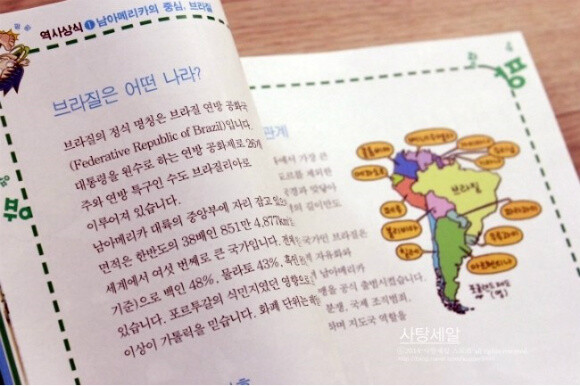 역사상식 1 남아메리카의 중심, 브라질
브라질은 어떤 나라?
브라질의 정식 명칭은 브라질 연방 공화국
(Federative Republic of Brazil)입니다.
대통령을 원수로 하는 연방 공화제로 26개
주와 연방 특구인 수도 브라질리아로
이루어져 있습니다.
남아메리카 대륙의 중앙부에 자리 잡고
면적은 한반도의 38배인 851만 4,877
세계에서 여섯 번째로 큰 국가입니다.
기준)으로 백인 48%, 물라토 43%, 흑인
있습니다. 포르투갈의 식민지였던 영향으로
이상이 가톨릭을 믿습니다. 화폐 단위는
관계
에서 가장 큰
르를 제외한
경과 맞닿아
의 길이만도
국가인 브라질은
자유화와
남아메리카
을 공식 출범시켰습니다.
분쟁, 국제 조직범죄,
하며 지도국 역할을
콜롬비아
에콰도르
페루
볼리비아
칠레
브라질
파라과이
우루과이
아르헨티나
사탕세알